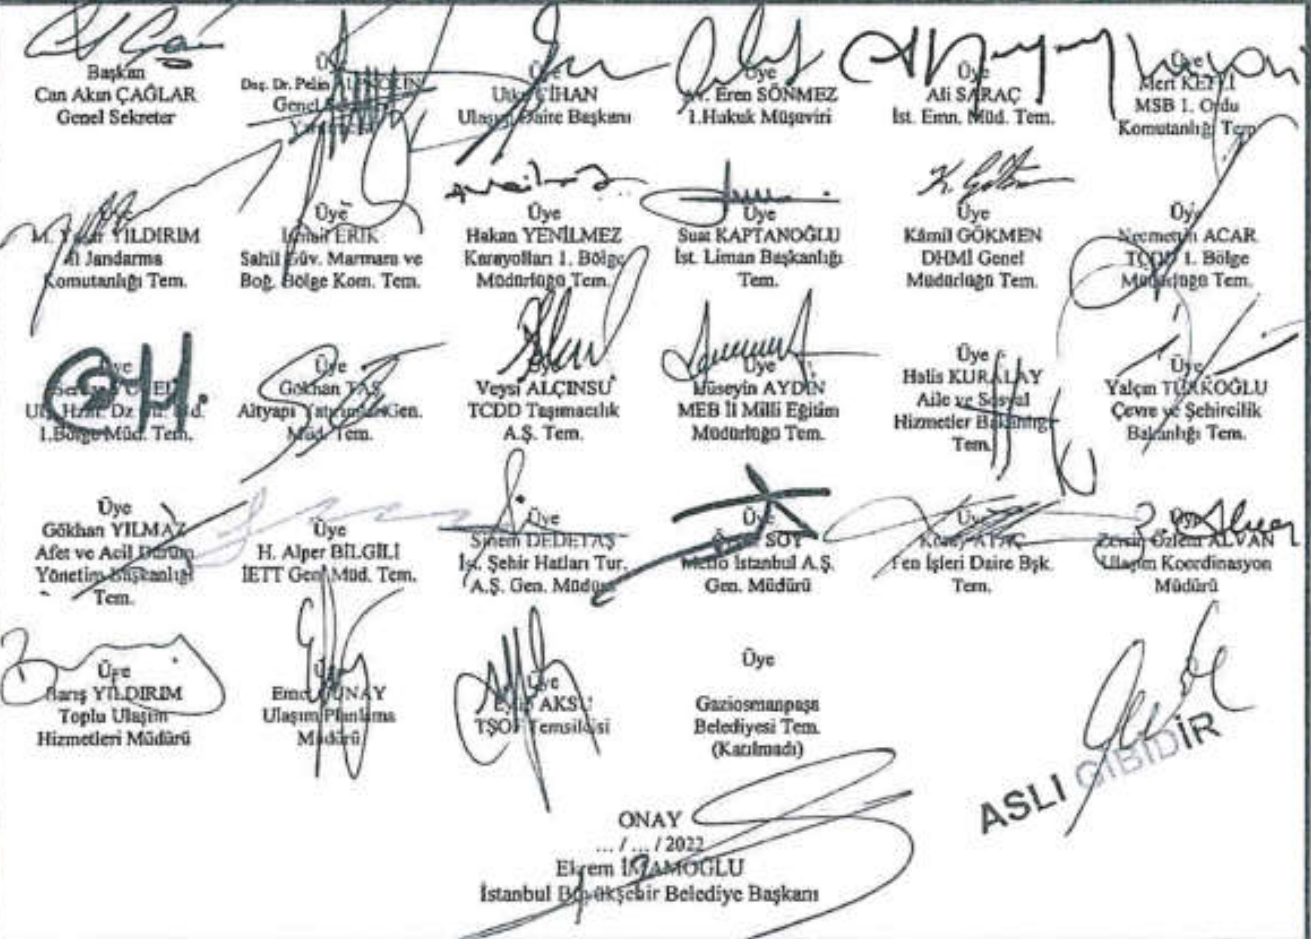 Başkan
Can Akın ÇAĞLAR
Genel Sekreter
Doç. Dr. Pelin
Genel
Üye
CİHAN
Ulaşım Daire Başkanı
Üye
Av. Eren SÖNMEZ
1.Hukuk Müşaviri
Üye
Ali SARAÇ
İst. Emn. Müd. Tem.
Üye
Mert
MSB 1. Ordu
Komutanlığı Tem.
Üye
M. YILDIRIM
İl Jandarma
Komutanlığı Tem.
Üye
İsmail ERİK
Sahil Güv. Marmara ve
Boğ. Bölge Kom. Tem.
Üye
Hakan YENİLMEZ
Karayolları 1. Bölge
Müdürlüğü Tem.
Üye
Suat KAPTANOĞLU
İst. Liman Başkanlığı
Tem.
Üye
Kâmil GÖKMEN
DHMİ Genel
Müdürlüğü Tem.
Üye
Necmettin ACAR
TCDD 1. Bölge
Müdürlüğü Tem.
Üye
1.Bölge Müd. Tem.
Üye
Gökhan TAŞ
Altyapı Yatırımları Gen.
Müd. Tem.
Üye
Veysi ALÇINSU
TCDD Taşımacılık
A.Ş. Tem.
Üye
Hüseyin AYDIN
MEB İl Milli Eğitim
Müdürlüğü Tem.
Üye
Halis KURALAY
Aile ve Sosyal
Hizmetler Bakanlığı
Tem.
Üye
Yalçın TÜRKOĞLU
Çevre ve Şehircilik
Bakanlığı Tem.
Üye
Gökhan YILMAZ
Afet ve Acil Durum
Yönetim Başkanlığı
Tem.
Üye
H. Alper BİLGİLİ
İETT Gen. Müd. Tem.
Üye
Sinem DEDETAŞ
İst. Şehir Hatları Tur.
A.Ş. Gen. Müdürü
Üye
SOY
Metro İstanbul A.Ş.
Gen. Müdürü
Üye
Fen İşleri Daire Bşk.
Tem.
Üye
Özlem ALVAN
Ulaşım Koordinasyon
Müdürü
Üye
Barış YILDIRIM
Toplu Ulaşım
Hizmetleri Müdürü
Üye
Ulaşım Planlama
Müdürü
Üye
AKSU
TŞOF Temsilcisi
Üye
Gaziosmanpaşa
Belediyesi Tem.
(Katılmadı)
ASLI GİBİDİR
ONAY
... / ... / 2022
Ekrem İMAMOĞLU
İstanbul Büyükşehir Belediye Başkanı